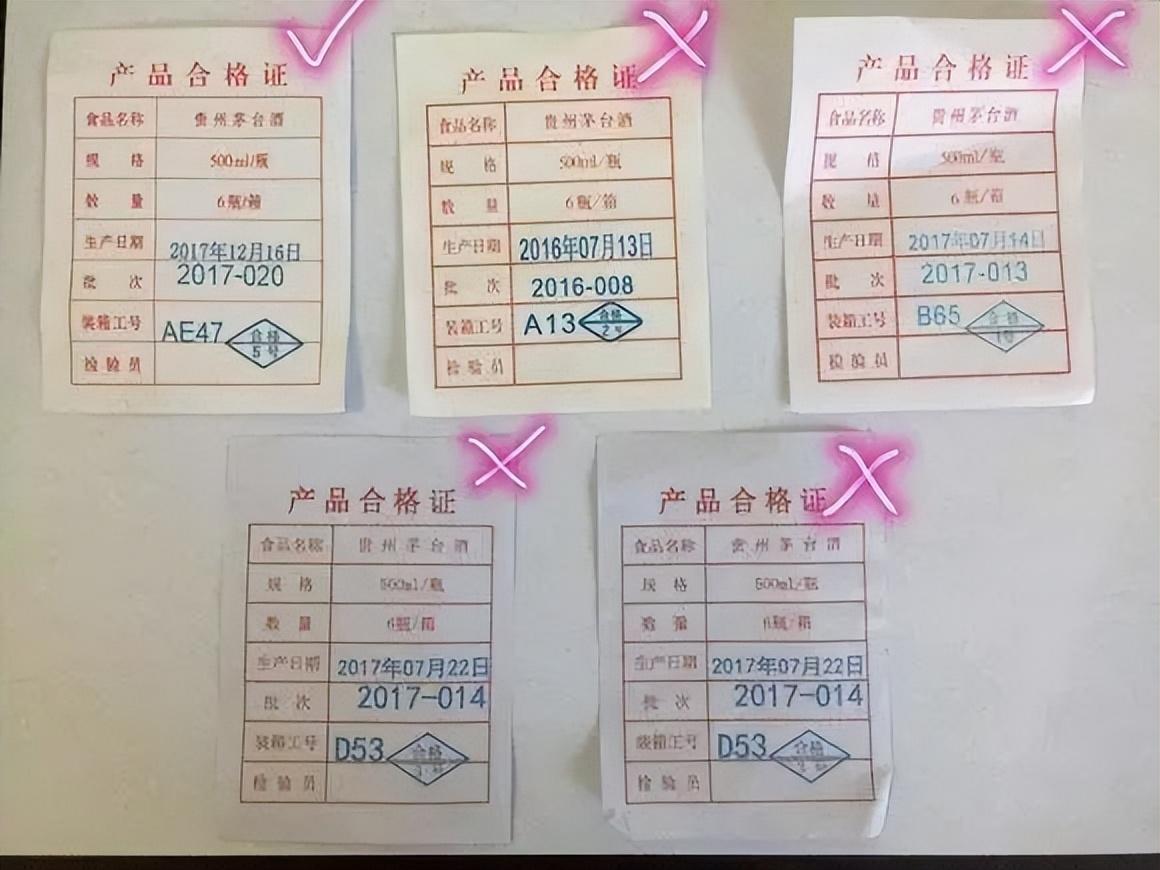 产品合格证
食品名称 贵州茅台酒
规格 500ml/瓶
数量 6瓶/箱
生产日期 2017年12月16日
批次 2017-020
装箱工号 AE47
合格
5号
检验员
产品合格证
食品名称 贵州茅台酒
规格 500ml/瓶
数量 6瓶/箱
生产日期 2016年07月13日
批次 2016-008
装箱工号 A13
合格
2号
检验员
产品合格证
食品名称 贵州茅台酒
规格 500ml/瓶
数量 6瓶/箱
生产日期 2017年07月14日
批次 2017-013
装箱工号 B65
合格
1号
检验员
产品合格证
食品名称 贵州茅台酒
规格 500ml/瓶
数量 6瓶/箱
生产日期 2017年07月22日
批次 2017-014
装箱工号 D53
合格
检验员
产品合格证
食品名称 贵州茅台酒
规格 500ml/瓶
数量 6瓶/箱
生产日期 2017年07月22日
批次 2017-014
装箱工号 D53
合格
检验员